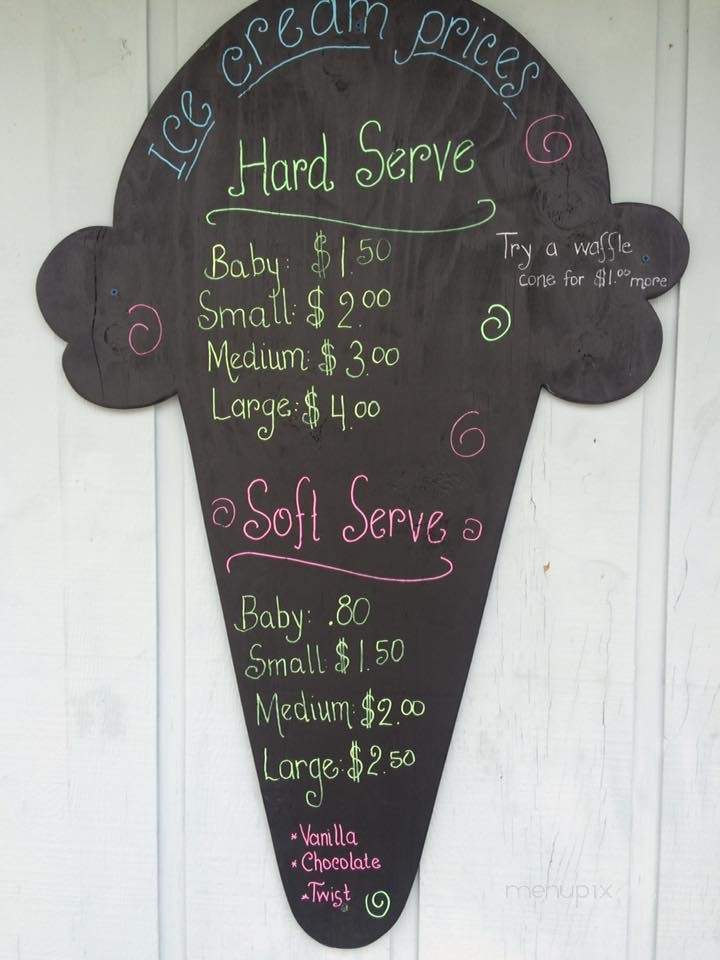 Ice cream prices
Hard Serve
Baby: $1.50
Small: $2.00
Medium: $3.00
Large: $4.00
Try a waffle
cone for $1.00 more
Soft Serve
Baby: .80
Small $1.50
Medium: $2.00
Large: $2.50
* Vanilla
* Chocolate
* Twist
menupix